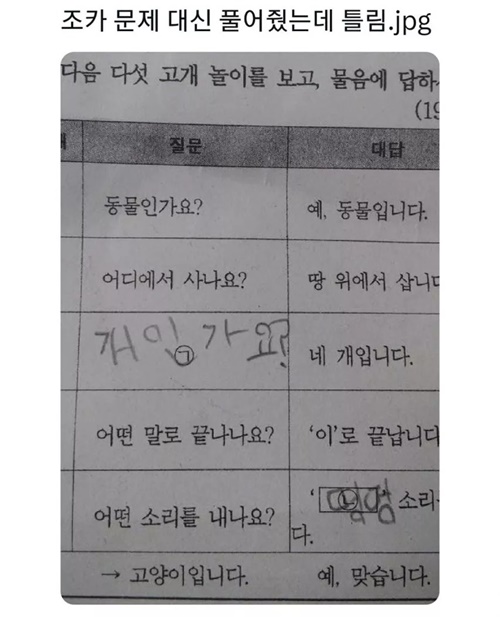 조카 문제 대신 풀어줬는데 틀림.jpg
다음 다섯 고개 놀이를 보고, 물음에 답하
(19
질문 대답
동물인가요? 예, 동물입니다.
어디에서 사나요? 땅 위에서 삽니다
개인가요? ㉠ 네 개입니다.
어떤 말로 끝나나요? ‘이’로 끝납니다
어떤 소리를 내나요? ‘ ㉡ 멍멍 ’ 소리
다.
→ 고양이입니다. 예, 맞습니다.